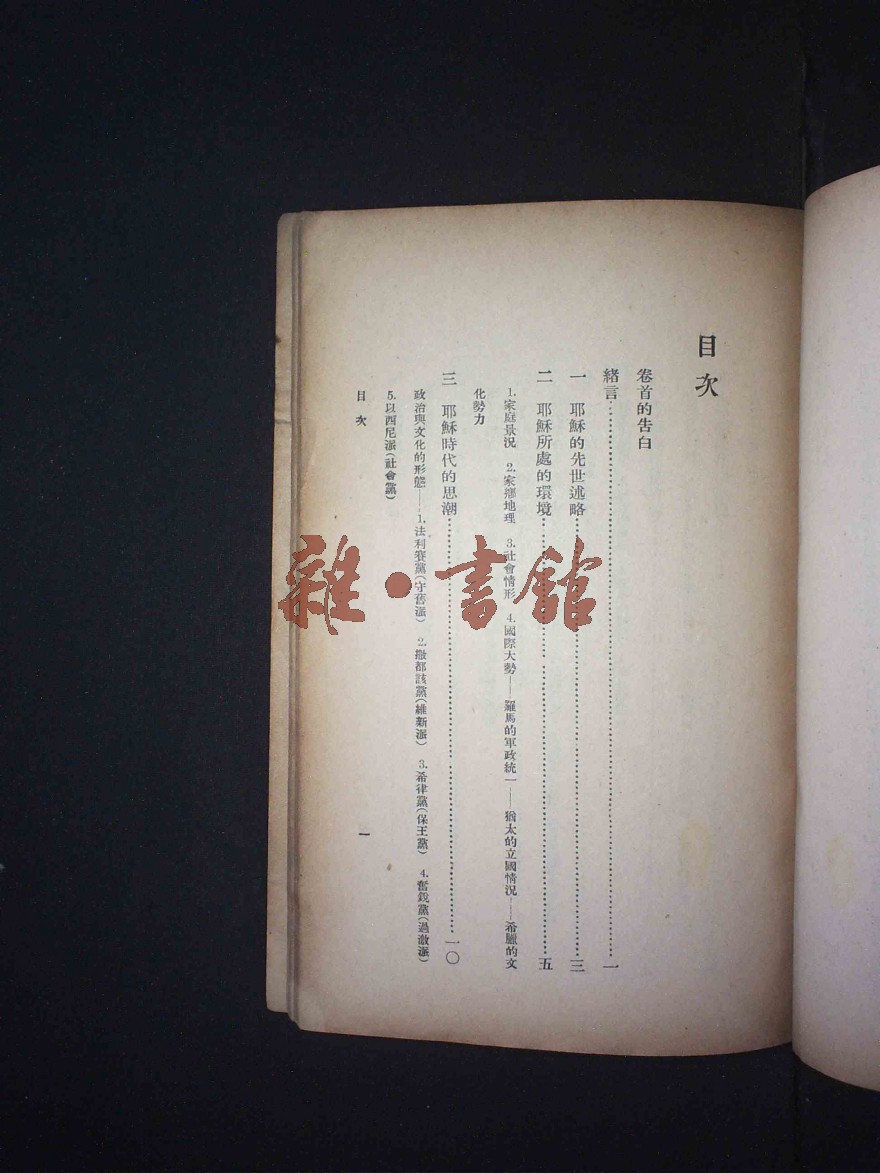 目次
卷首的告白
緒言……一
一 耶穌的先世述略……三
二 耶穌所處的環境……五
1.家庭景況 2.家鄉地理 3.社會情形 4.國際大勢——羅馬的軍政統一——猶太的立國情況——希臘的文
化勢力
三 耶穌時代的思潮……一〇
政治與文化的形態——1.法利賽黨(守舊派) 2.撒都該黨(維新派) 3.希律黨(保王黨) 4.奮銳黨(過激派)
5.以西尼派(社會黨)
目次
一
雜·書館